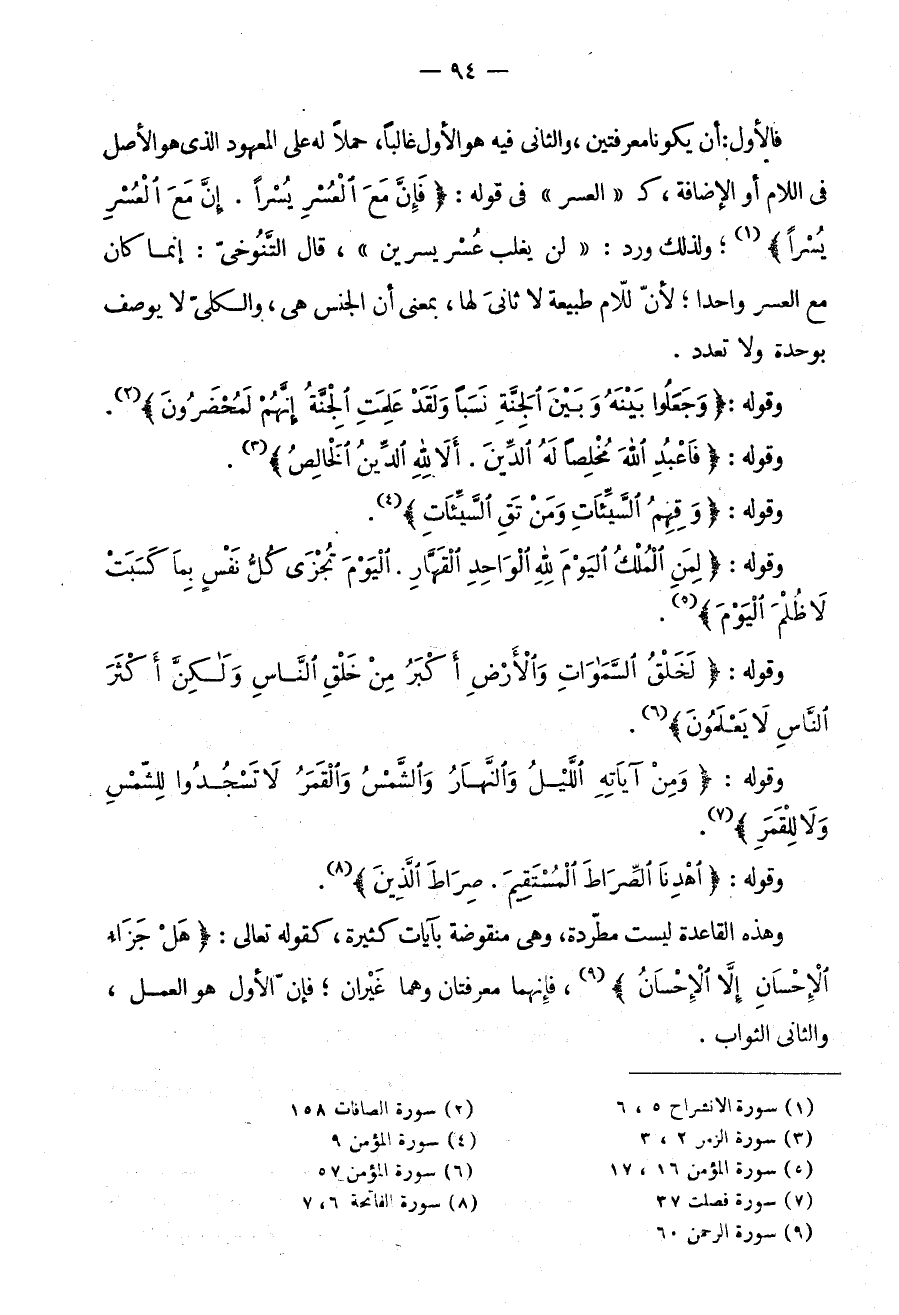 — ٩٤ —
فالأول: أن يكونا معرفتين، والثانى فيه هو الأول غالباً، حملاً له على المعهود الذى هو الأصل
فى اللام أو الإضافة، كـ « العسر » فى قوله : ﴿ فَإِنَّ مَعَ ٱلْعُسْرِ يُسْراً . إِنَّ مَعَ ٱلْعُسْرِ
يُسْراً ﴾ (١) ؛ ولذلك ورد : « لن يغلب عُسْر يسرين » ، قال التَّنُوخىّ : إنمـا كان
مع العسر واحدا ؛ لأنّ للّام طبيعة لا ثانىَ لها، بمعنى أن الجنس هى، والـكلىّ لا يوصف
بوحدة ولا تعدد .
وقوله : ﴿ وَجَعَلُوا بَيْنَهُ وَبَيْنَ ٱلْجِنَّةِ نَسَباً وَلَقَدْ عَلِمَتِ ٱلْجِنَّةُ إِنَّهُمْ لَمُحْضَرُونَ ﴾(٢).
وقوله : ﴿ فَٱعْبُدِ ٱللهَ مُخْلِصاً لَهُ ٱلدِّينَ . أَلَا لِلهِ ٱلدِّينُ ٱلْخَالِصُ ﴾(٣) .
وقوله : ﴿ وَقِهِمُ ٱلسَّيِّئَاتِ وَمَنْ تَقِ ٱلسَّيِّئَاتِ ﴾(٤).
وقوله : ﴿ لِمَنِ ٱلْمُلْكُ ٱلْيَوْمَ لِلهِ ٱلْوَاحِدِ ٱلْقَهَّارِ . ٱلْيَوْمَ تُجْزَى كُلُّ نَفْسٍ بِمَا كَسَبَتْ
لَا ظُلْمَ ٱلْيَوْمَ ﴾(٥) .
وقوله : ﴿ لَخَلْقُ ٱلسَّمَٰوَاتِ وَٱلْأَرْضِ أَكْبَرُ مِنْ خَلْقِ ٱلنَّـاسِ وَلَٰـكِنَّ أَكْثَرَ
ٱلنَّاسِ لَا يَعْـلَمُونَ ﴾(٦) .
وقوله : ﴿ وَمِنْ آيَاتِهِ ٱللَّيْـلُ وَٱلنَّهـَارُ وَٱلشَّمْسُ وَٱلْقَمَرُ لَا تَسْجُـدُوا لِلشَّمْسِ
وَلَا لِلْقَمَرِ ﴾(٧).
وقوله : ﴿ ٱهْدِنَا ٱلصِّرَاطَ ٱلْمُسْتَقِيمَ . صِرَاطَ ٱلَّذِينَ ﴾(٨).
وهذه القاعدة ليست مطّردة، وهى منقوضة بآيات كثيرة، كقوله تعالى : ﴿ هَلْ جَزَاءُ
ٱلْإِحْسَانِ إِلَّا ٱلْإِحْسَانُ ﴾ (٩) ، فإنهما معرفتان وهما غَيْران ؛ فإنّ الأول هو العمـل ،
والثانى الثواب .
(١) سورة الانشراح ٥ ، ٦ (٢) سورة الصافات ١٥٨
(٣) سورة الزمر ٢ ، ٣ (٤) سورة المؤمن ٩
(٥) سورة المؤمن ١٦ ، ١٧ (٦) سورة المؤمن ٥٧
(٧) سورة فصلت ٣٧ (٨) سورة الفاتحة ٦ ، ٧
(٩) سورة الرحمن ٦٠